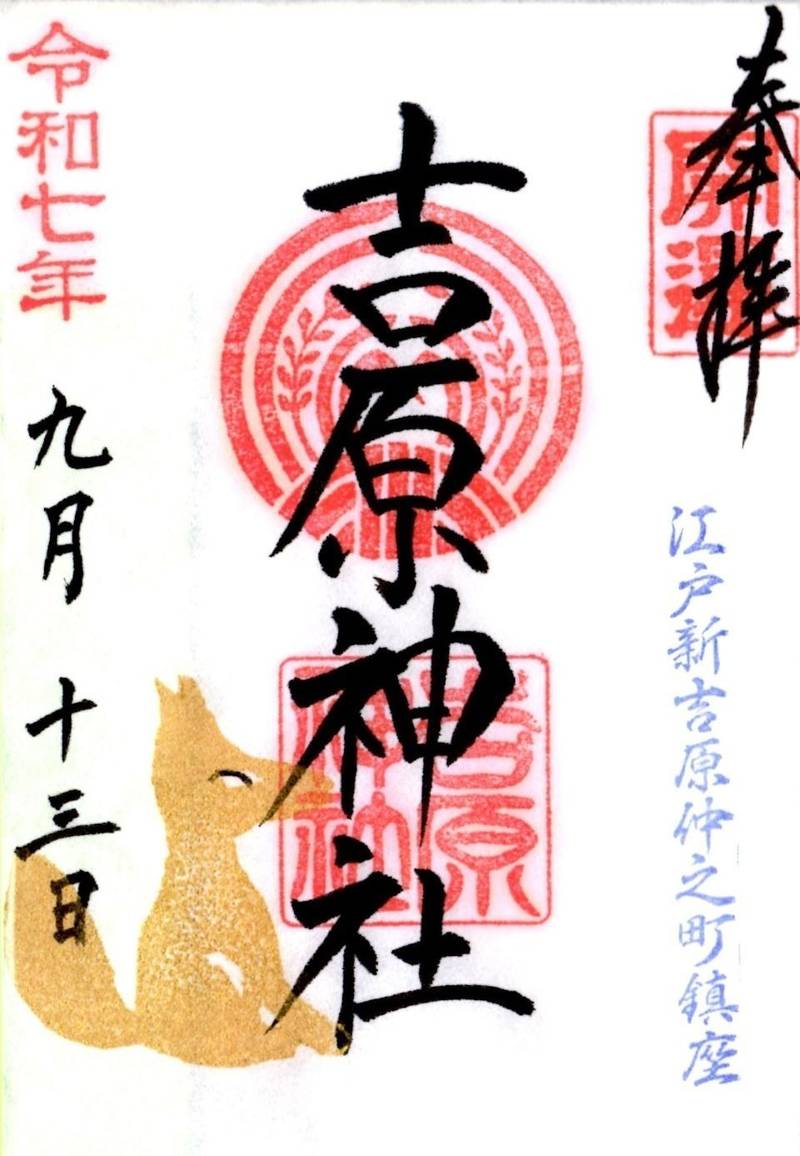 奉拝
開運
江戸新吉原仲之町鎮座
吉原神社
吉原
神社
令和七年
九月 十三日